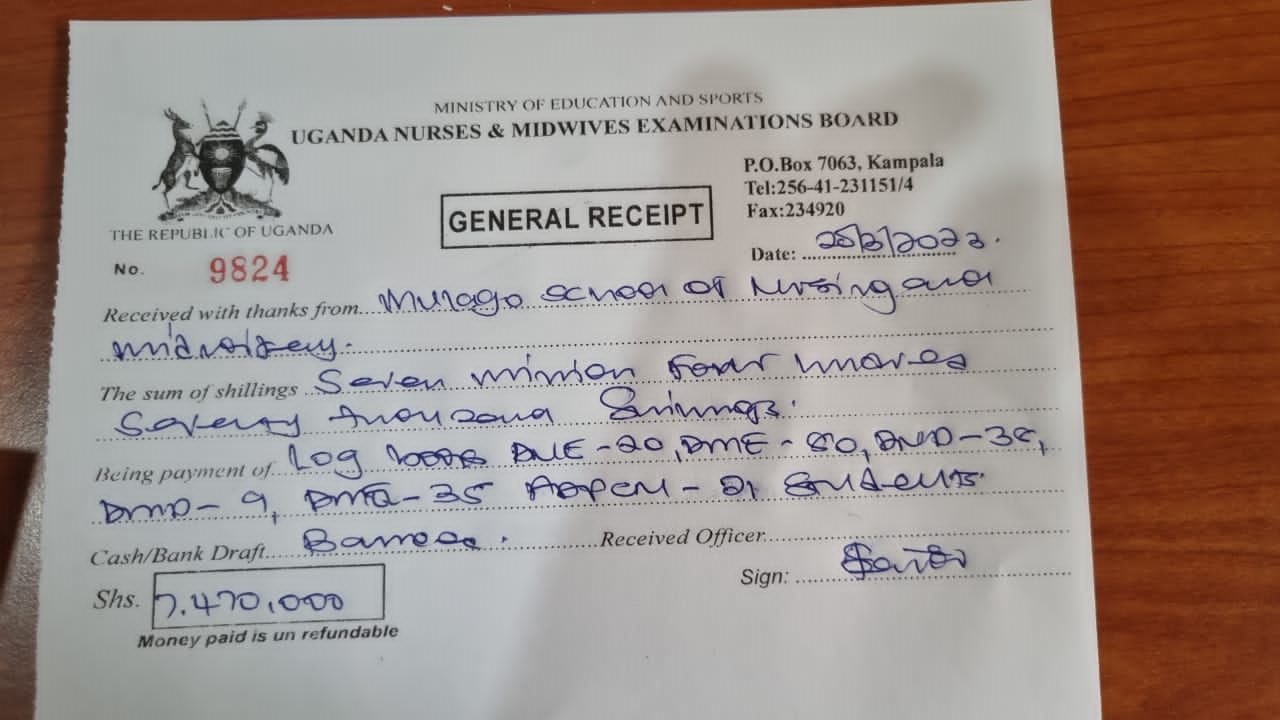 MINISTRY OF EDUCATION AND SPORTS
UGANDA NURSES & MIDWIVES EXAMINATIONS BOARD
P.O.Box 7063, Kampala
Tel:256-41-231151/4
Fax:234920
GENERAL RECEIPT
THE REPUBLIC OF UGANDA
Date: /2023.
No. 9824
Received with thanks from Mulago School of Nursing and
midwifery.
The sum of shillings Seven million Four hundred
Seventy thousand Shillings.
Being payment of Log books DNE-20, DME-80,
DMD-9, -35 students.
Cash/Bank Draft Banked. Received Officer
Sign:
Shs. 7.470,000
Money paid is un refundable